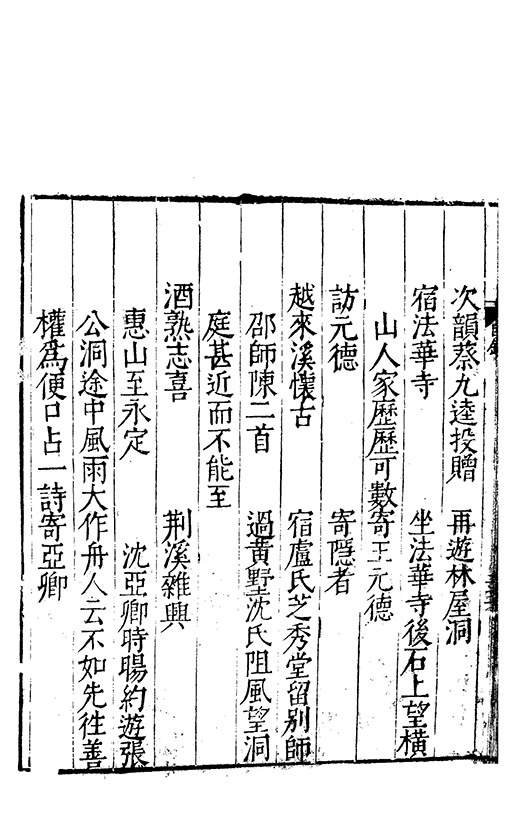 次韻蔡九逵投贈　再遊林屋洞
宿法華寺　坐法華寺後石上望橫
山人家歷歷可數寄王元德
訪元德　寄隱者
越來溪懷古　宿盧氏芝秀堂留別師
邵師陳二首　過黃墅沈氏阻風望洞
庭甚近而不能至
酒熟志喜　荆溪雜興
惠山至永定　沈亞卿時暘約遊張
公洞途中風雨大作舟人云不如先徃善
權爲便口占一詩寄亞卿